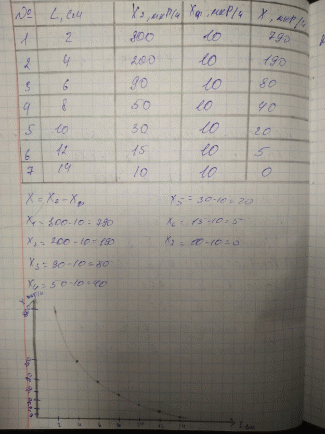 № L, см Xэ, мкР/ч Xф, мкР/ч X, мкР/ч
1 2 300 10 290
2 4 200 10 190
3 6 90 10 80
4 8 50 10 40
5 10 30 10 20
6 12 15 10 5
7 14 10 10 0
X = Xэ - Xф
X1 = 300-10 = 290
X2 = 200-10 = 190
X3 = 90-10 = 80
X4 = 50-10 = 40
X5 = 30-10 = 20
X6 = 15-10 = 5
X7 = 10-10 = 0